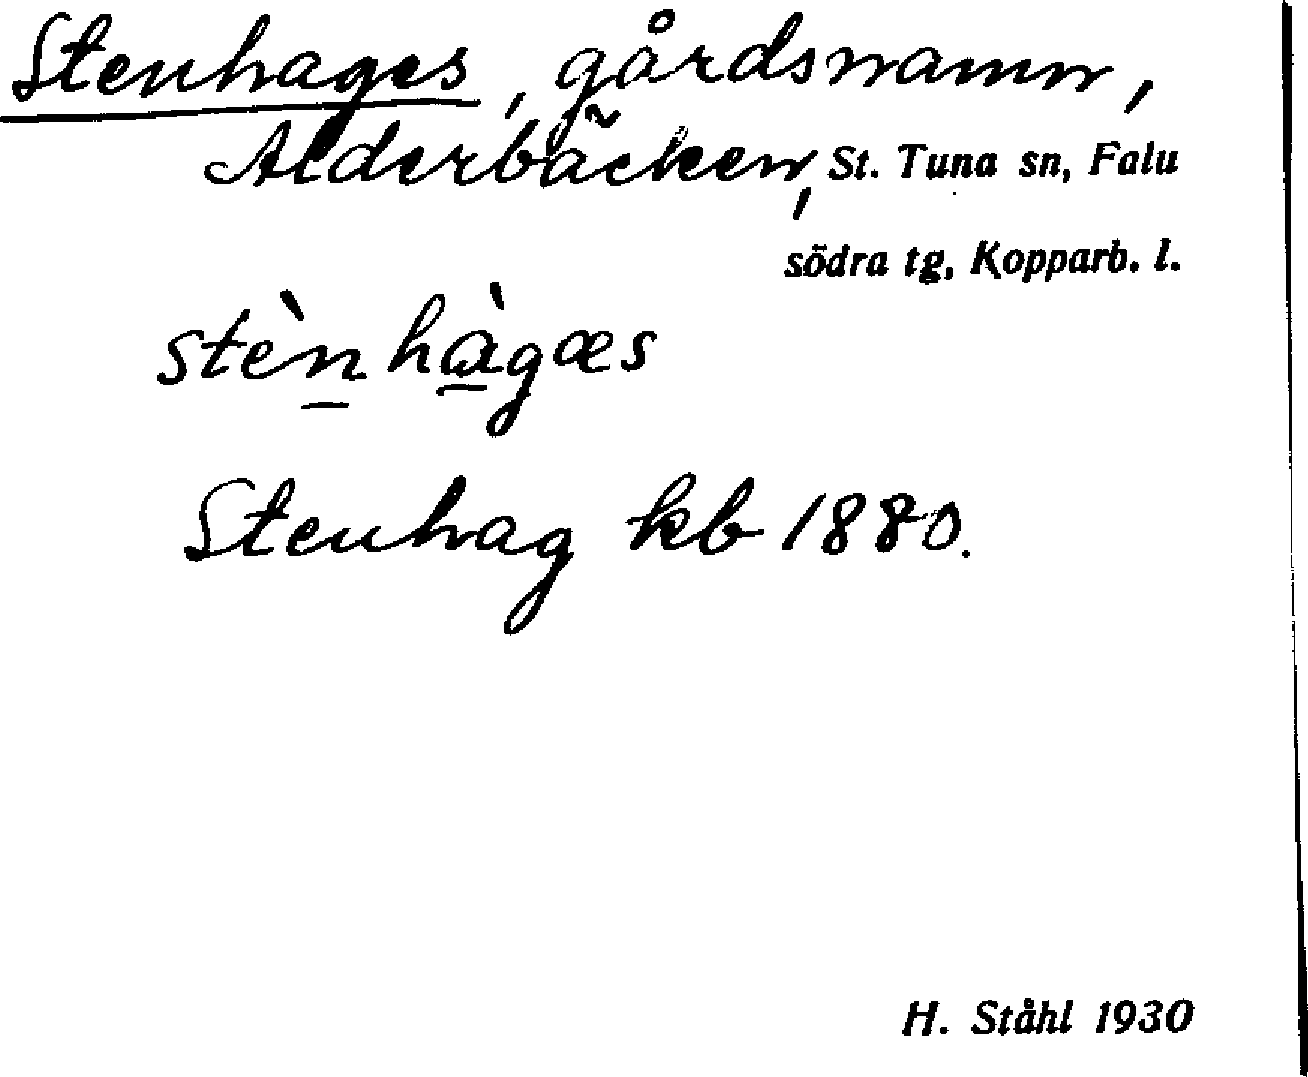 Stenhages, gårdsnamn,
Alderbäcken, St. Tuna sn, Falu
södra tg, Kopparb. l.
stèn̲hà̲gæs
Stenhag kb 1880.
H. Ståhl 1930